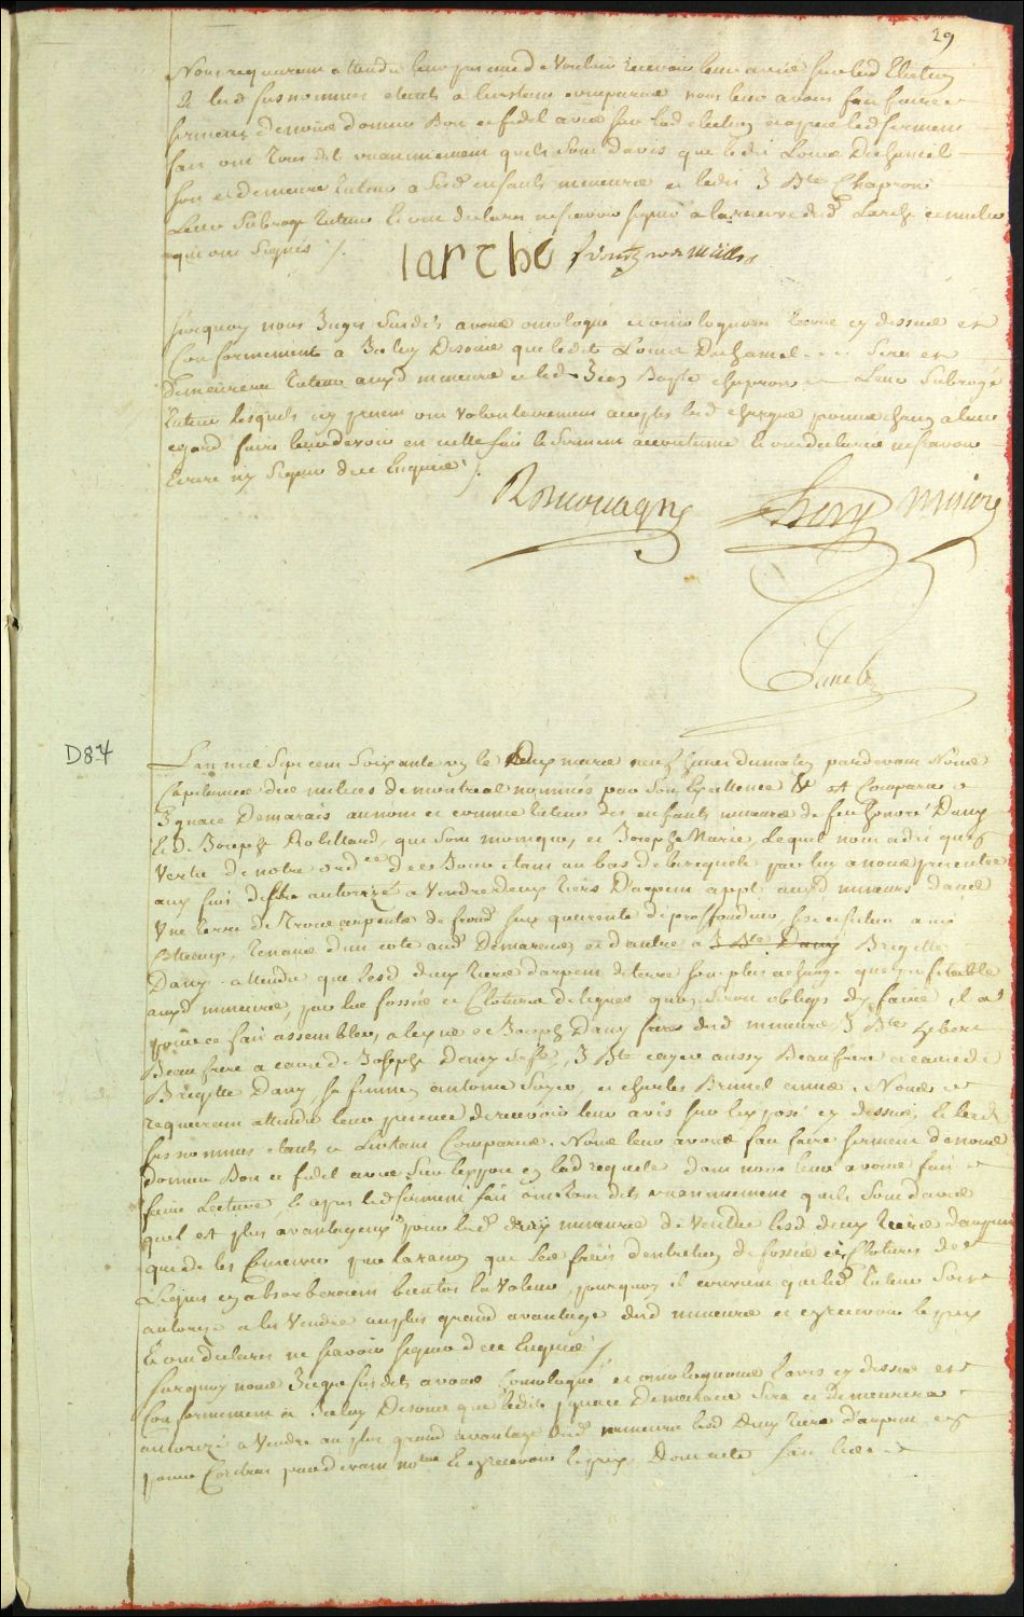 29
Nous requerant attendu leur presence de Vouloir recevoir leur avis sur lad Election
& lesd susnommés etants a linstant comparus nous leur avons fait faire
serment de nous donner Bon et fidel avis sur lad election et apres led serment
fait ont tous dit unanimement quils sont davis que ledit Louis Duhamel
soit et demeure tuteur a sesd enfants mineurs et ledit J Bte Chapron
Leur Subrogé tuteur Et ont declaré ne scavoir signer a la reserve dud Larche
qui ont Signés ·/.
larche
surquoy nous Juges Susdits avons omologué et omologuons lavis cy dessus et
Conformement a Iceluy Disons que ledit Louis Duhamel Sera et
Demeurera tuteur auxd mineurs et led Jean Bapte chapron Leur Subrogé
tuteur lesquels icy presens ont Volontairement accepté lad chargue promis chacun a leur
egard faire leur devoir en ont fait le Serment accoutumé Et ont declarés ne scavoir
Ecrire ny Signer de ce Enquis ·/.
Hery
D84
Lan mil Sept cent Soixante un le Deux mars neuf heures du matin pardevant Nous
Capitaines des milices de montreal nommés par Son Excellence & est Comparu
Ignace Demarais au nom et comme tuteur des enfants mineurs de feu honoré Dany
Et D. Joseph Robillard, et Joseph Marie, Lequel nous a dit quen
Vertu de notre ordce de ce Jour etant au bas de la requete par luy a nous presentée
aux fins destre autorizé a Vendre deux tiers D'arpent appt auxd mineurs dans
Une terre de trois arpents de front sur quarente de proffondeur, sise et située a
tenant d'un coté aud Demarais, et d'autre a J Bte Dany Brigitte
Dany. attendu que lesd deux tiers d'arpent de terre sont plus a charge que profitable
auxd mineurs, par les fossés et Clotures de lignes quon Seroit obligé dy faire, il a
pour ce fait assembler, et Joseph Dany frere desd mineurs, J Bte hebert
Beau frere a cause de Josephe Dany Sa fe, J Bte cayer aussy Beau frere a cause de
Brigitte Dany, sa femme, antoine Foyer, et charles Brunel amis. Nous
requerant attendu leur presence de recevoir leur avis sur lexposé cy dessus, & lesd
susnommés etants a Linstant Comparus. Nous leur avons fait faire serment de nous
donner Bon et fidel avis Sur lexposé en lad requete dont nous leur avons fait
faire Lecture, & apres led serment fait ont tous dits unanimement quils Sont davis
quil est plus avantageux pour lesd mineurs de Vendre lesd deux tiers darpent
que de les Conserver par la raison que Les frais dentretien de fossés et Clotures de
Lignes en absorberoient bientot la Valeur, pourquoy il convient que led tuteur Soit
autorizé a les Vendre au plus grand avantage desd mineurs et en recevoir le prix
Et ont declarés ne scavoir signer de ce Enquis ·/.
Surquoy nous Juges susdits avons homologué et omologuons lavis cy dessus et
Conformement a Iceluy Disons que ledit Ignace Demarais Sera et Demeurera
autorizé a Vendre au plus grand avantage desd mineurs lesd Deux tiers d'arpent, en
passer Contrat pardevant nore & en recevoir le prix Dont acte fait